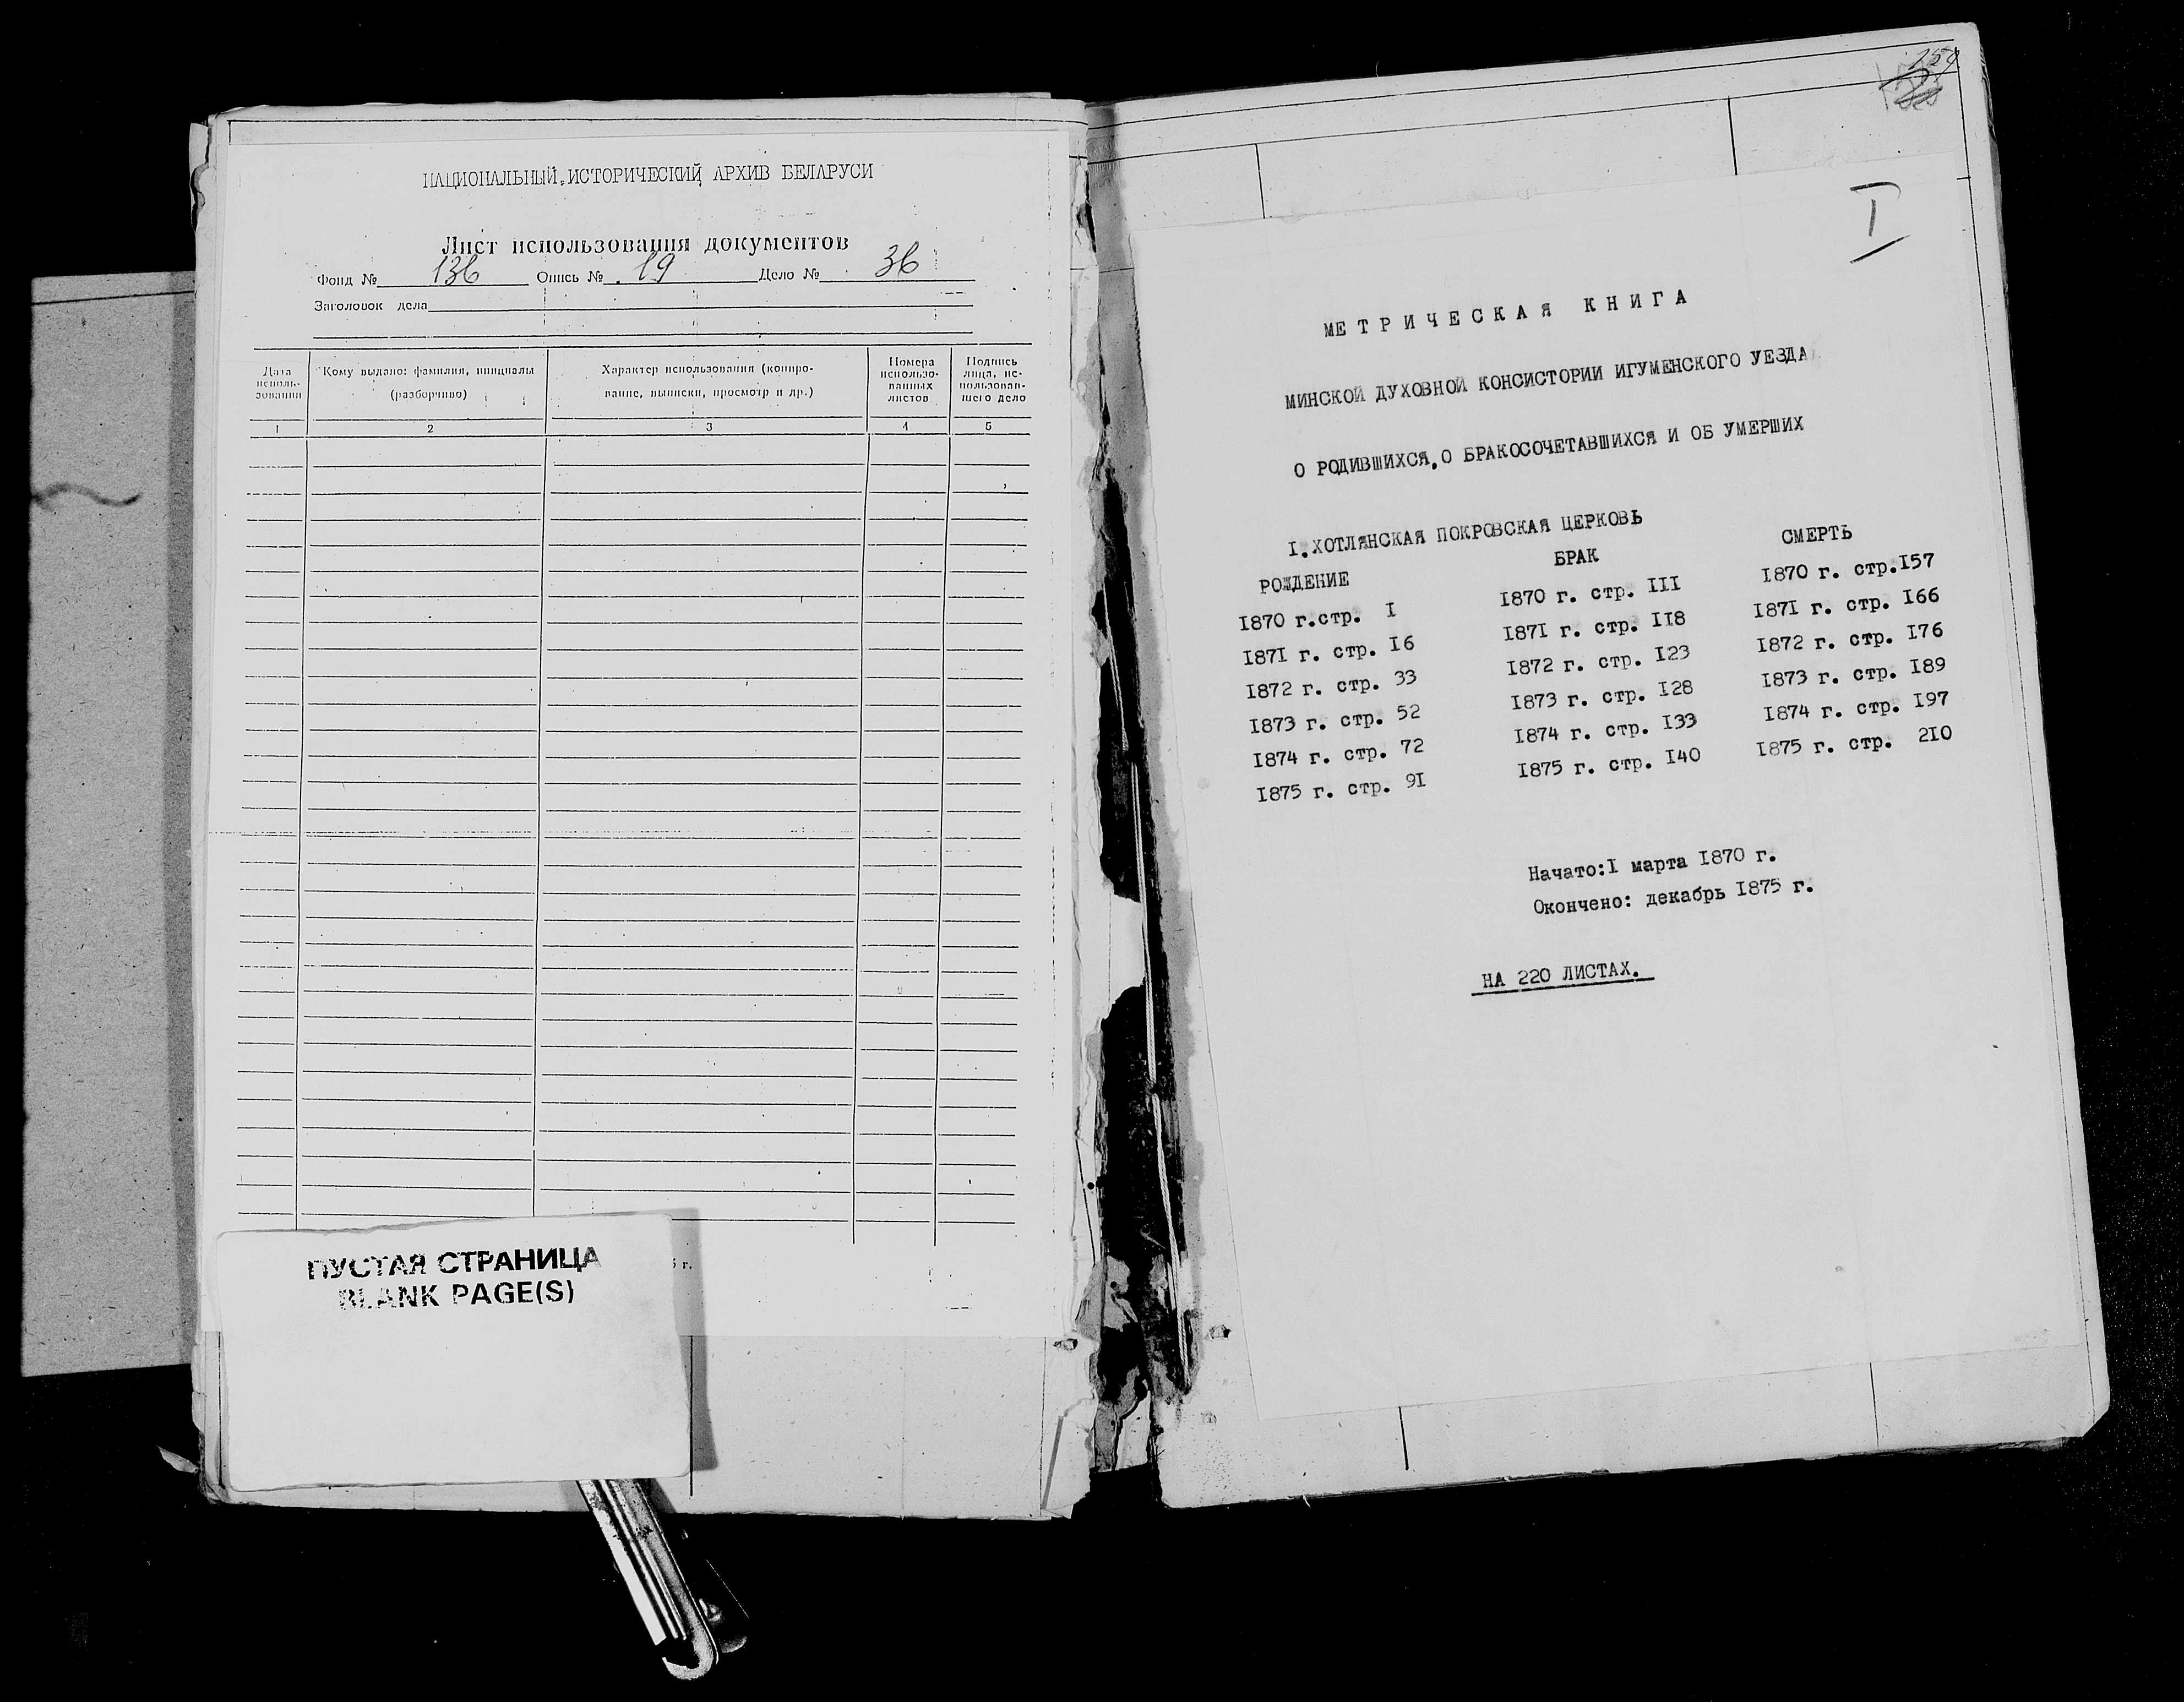 НАЦИОНАЛЬНЫЙ ИСТОРИЧЕСКИЙ АРХИВ БЕЛАРУСИ
Лист использования документов
Фонд № 136 Опись № 19 Дело № 36
Заголовок дела
Дата исполь-зования
Кому выдано: фамилия, инициалы (разборчиво)
Характер использования (копиро-вание, выписки, просмотр и др.)
Номера использо-ванных листов
Подпись лица, ис-пользовав-шего дело
1 2 3 4 5
ПУСТАЯ СТРАНИЦА
BLANK PAGE(S)
г.
I
МЕТРИЧЕСКАЯ КНИГА
МИНСКОЙ ДУХОВНОЙ КОНСИСТОРИИ ИГУМЕНСКОГО УЕЗДА
О РОДИВШИХСЯ, О БРАКОСОЧЕТАВШИХСЯ И ОБ УМЕРШИХ
I. ХОТЛЯНСКАЯ ПОКРОВСКАЯ ЦЕРКОВЬ
РОЖДЕНИЕ БРАК СМЕРТЬ
I870 г.стр. I I870 г. стр. III I870 г. стр.I57
I87I г. стр. I6 I87I г. стр. II8 I87I г. стр. I66
I872 г. стр. 33 I872 г. стр. I23 I872 г. стр. I76
I873 г. стр. 52 I873 г. стр. I28 I873 г. стр. I89
I874 г. стр. 72 I874 г. стр. I33 I874 г. стр. I97
I875 г. стр. 9I I875 г. стр. I40 I875 г. стр. 2I0
Начато:I марта I870 г.
Окончено: декабрь I875 г.
НА 220 ЛИСТАХ.